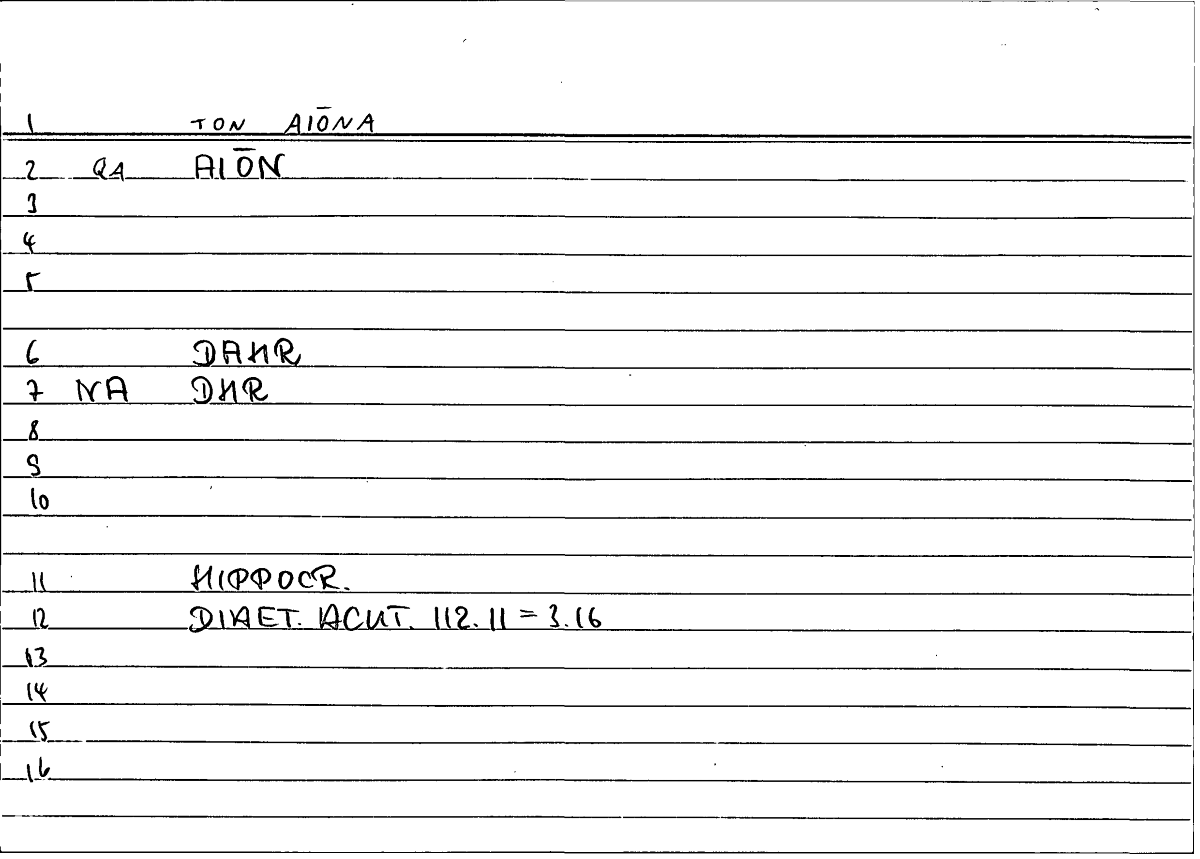 1 TON AIŌNA
2 QA AIŌN
3
4
5
6 DAHR
7 NA DHR
8
9
10
11 HIPPOCR.
12 DIAET. ACUT. 112.11 = 3.16
13
14
15
16